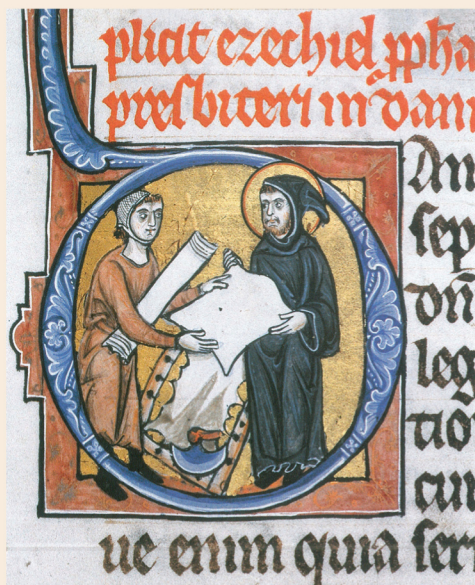 plicit ezechiel ꝓpha
presbiteri in dani
DAn
sep
dn̄
leg
tio
cur
ue enim quia ser